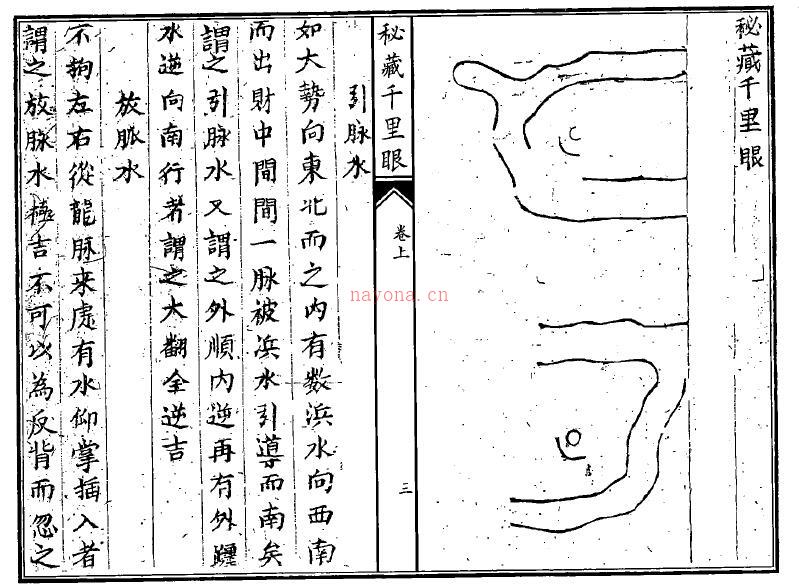 秘藏千里眼
秘藏千里眼
卷上
三
引脉水
如大勢向東北而之内有数浜水向西南
而出財中間間一脉被浜水引導而南矣
謂之引脉水又謂之外順内逆再有外躔
水逆向南行者謂之大翻全逆吉
放脈水
不拘左右從龍脉来處有水仰掌插入者
謂之放脉水極吉不可以為反背而忽之
nayona.cn